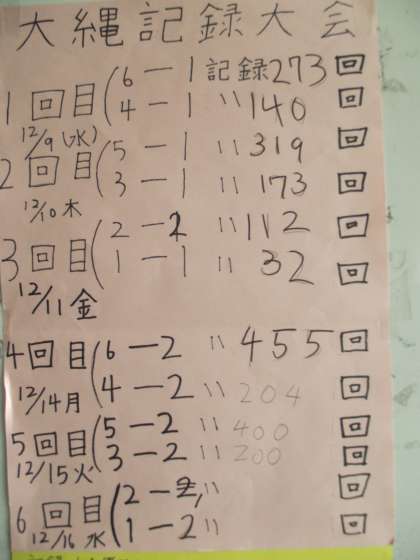 大縄記録大会
1回目(6-1 記録273回
4-1 〃140回
12/9(水)
2回目(5-1 〃319回
3-1 〃173回
12/10木
3回目(2-1 〃112回
1-1 〃32回
12/11金
4回目(6-2 〃455回
4-2 〃204回
12/14月
5回目(5-2 〃400回
3-2 〃200回
12/15火
6回目(2-2 〃 回
1-2 〃 回
12/16水